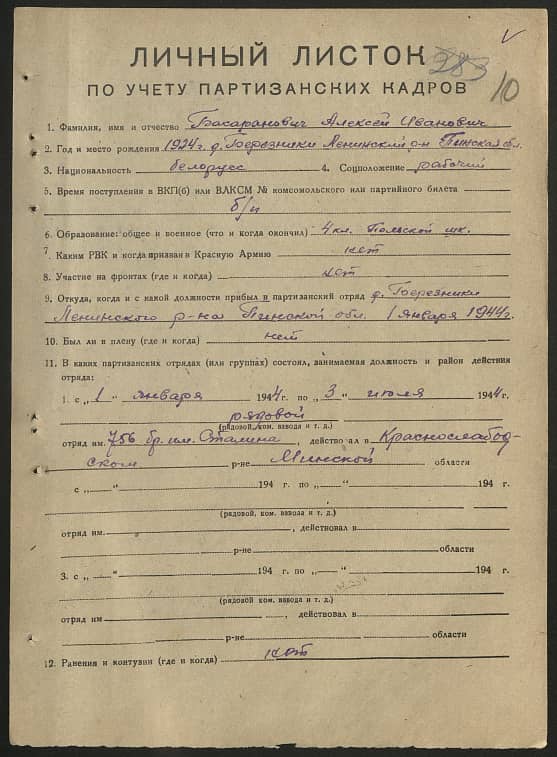 283
10
ЛИЧНЫЙ ЛИСТОК
ПО УЧЕТУ ПАРТИЗАНСКИХ КАДРОВ
1. Фамилия, имя и отчество Басаранович Алексей Иванович
2. Год и место рождения 1924г. д. Березники Ленинский р-н Пинская обл.
3. Национальность белорусс 4. Соцположение рабочий
5. Время поступления в ВКП(б) или ВЛКСМ № комсомольского или партийного билета
б/п
6. Образование: общее и военное (что и когда окончил) 4 кл. Польской шк.
7. Каким РВК и когда призван в Красную Армию нет
8. Участие на фронтах (где и когда) нет
9. Откуда, когда и с какой должности прибыл в партизанский отряд д. Березники
Ленинского р-на Пинской обл. 1 января 1944г.
10. Был ли в плену (где и когда) нет
11. В каких партизанских отрядах (или группах) состоял, занимаемая должность и район действия
отряда:
1. с „1" января 1944 г. по „3" июля 1944 г.
рядовой
(рядовой, ком. взвода и т. д.)
отряд им. 756 бр. им. Сталина, действовал в Краснослабод-
ском р-не Минской области
с „ " 194 г. по „ " 194 г.
(рядовой, ком. взвода и т. д.)
отряд им. , действовал в
р-не области
3. с „ " 194 г. по „ " 194 г.
(рядовой ком. взвода и т. д.)
отряд им , действовал в
р-не области
12. Ранения и контузии (где и когда) нет